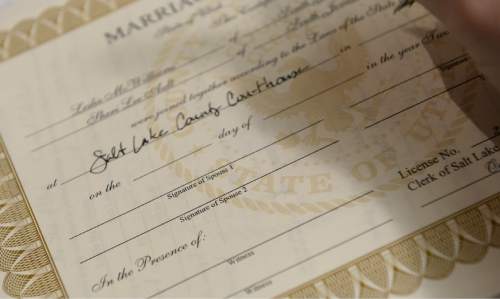 MARRIA
State of Utah
of South
of South Jorda
were joined together according to the Laws of the State
at Salt Lake County Courthouse in
on the day of in the year Two
Signature of Spouse 1
Signature of Spouse 2
STATE OF UT
In the Presence of:
Witness
Witness
License No.
Clerk of Salt Lake